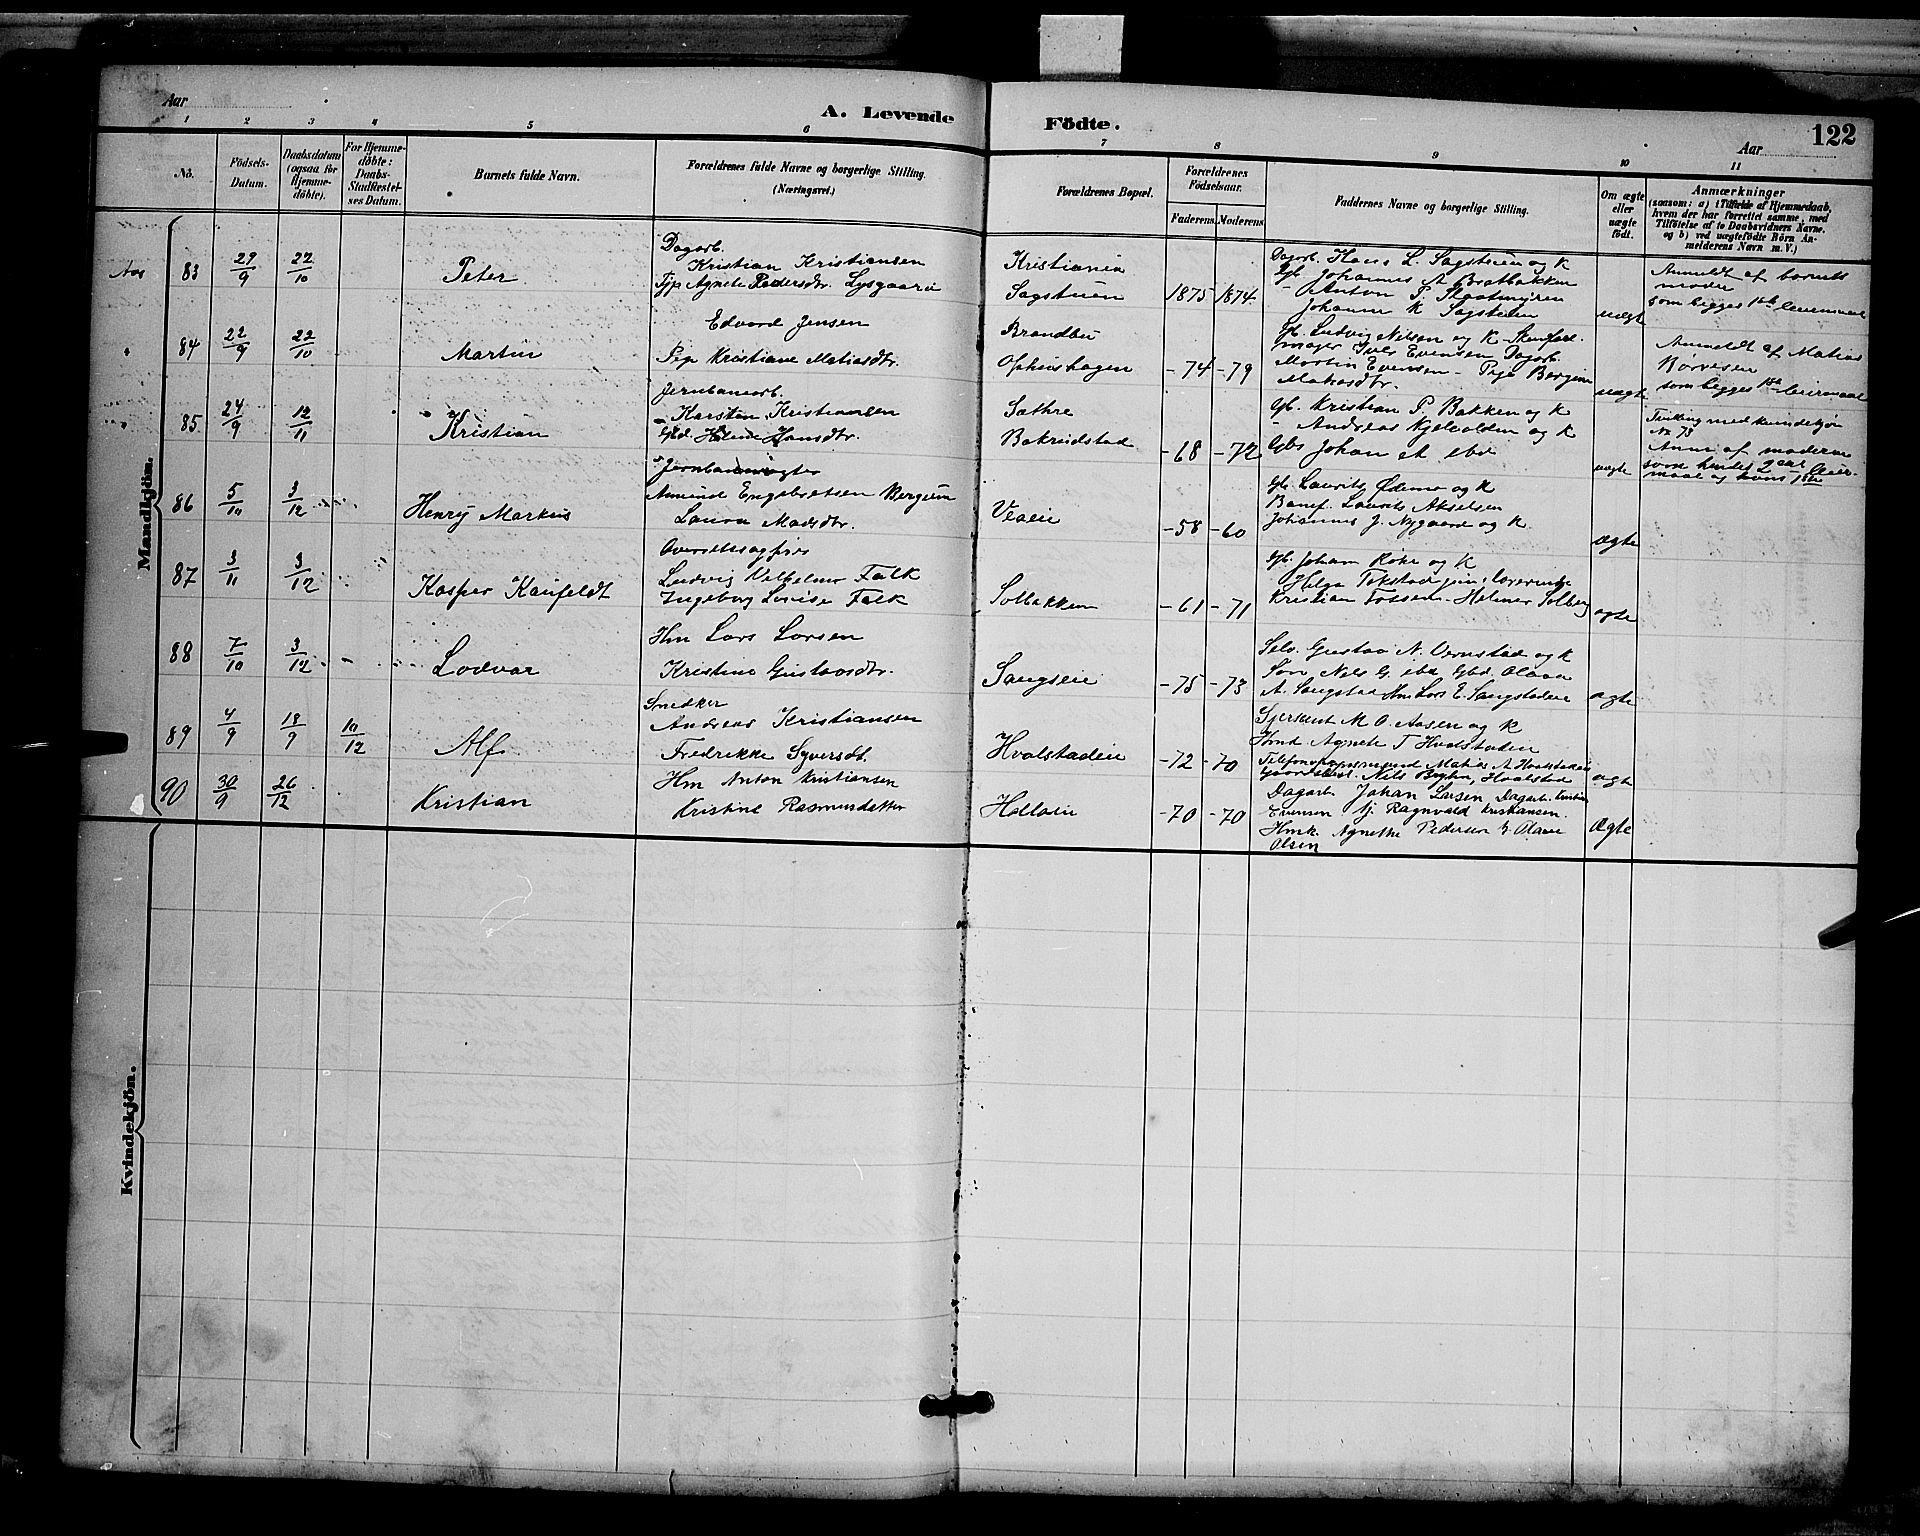 Aar
A. Levende Födte.
Aar
122
1 2 3 4 5 6 7 8 9 10 11
No.
Födsels-Datum.
Daabsdatum (ogsaa for Hjemme-döbte).
For Hjemme-döbte: Daabs-Stadfæstel-ses Datum.
Barnets fulde Navn.
Forældrenes fulde Navne og borgerlige Stilling. (Næringsvei.)
Forældrenes Bopæl.
Forældrenes Födselsaar.
Faderens. Moderens.
Faddernes Navne og borgerlige Stilling.
Om ægte eller uægte födt.
Anmærkninger
(saasom: a) i Tilfælde af Hjemmedaab, hvem der har forrettet samme, med Tilföielse af to Daabsvidners Navne, og b) ved uægtefödte Börn An-melderens Navn m. V.)
Mandkjön.
Aas
83 29/9 22/10
Peter
Dagarb.
Kristian Kristiansen
Agnete Pedersdtr. Lysgaard
Kristiania
Sagstuen
1875 1874
Dagarb. Hans L. Sagstuen og K
Gb. Johannes A Bratbakken
Anton P.
Johanne K Sagstuen
uægt
Anmeldt af barnets
moder
som begges 1ste leiermaal
84 22/9 22/10
Martin
Edvard Jensen
Pige Kristiane Matiasdtr.
Brandbu
Ophushagen
-74 -79
Gb. Ludvig Nilsen og K
Iver Evensen Dagarb.
Martin Evensen - Pige Bergine
Matiasdtr.
uægt
Anmeldt af Matias
Børvesen
som begges 1ste leiermaal
85 24/9 12/11
Kristian
Jernbanearb.
Karsten Kristiansen
Hansdtr.
Sæthre
Bakrudstad
-68 -72
Gb. Kristian P. Bakken og K
- Andreas Kjelvolden og K
Gbs Johan et ibd
uægte
Tvilling med kvindekjøn
No 73
Anm af moderen
som hendes 2det leier-
maal og hans 1ste
86 5/10 3/12
Henry Markus
Jernbanevogter
Amund Engebretsen Bergum
Laura Madsdtr.
Veaeie
-58 -60
Gb. Laurits Ødemo og K
Banef. Laurits Akselsen
Johannes J. Nygaard og K.
Ægte
87 3/11 3/12
Kasper Kaufeldt
Ludvig Vilhelm Falk
Ingeborg Lovise Falk
Solbakken
-61 -71
Gb. Johan Røke og K
Helga Tokstad
Kristian Fossem - Helmer Solberg
ægte
88 7/10 3/12
Lodvar
Hm Lars Larsen
Kristine Gustavsdtr.
Sangseie
-75 -73
Selv. Gustav N. Vernstad og K
Søn Nils G. ibd Gbd. Olava
A. Sangstad Hm Lars E. Sangstadeie
ægte
89 4/9 18/9 10/12
Alf
Snedker
Andreas Kristiansen
Fredrikke Syversdt.
Hvalstadeie
-72 -70
Sjersant M O. Aasen og K
Hmk Agnete T Hvalstadeie
Matias A Hvalstadeie
Nils Bryhn, Hvalstad
ægte
90 30/9 26/12
Kristian
Hm Anton Kristiansen
Kristine Rasmusdatter
Holloeie
-70 -70
Dagarb. Johan Larsen Dagarb. Kristian
Evensen Uj. Ragnvald Kristiansen.
Hmk. Agnethe Pedersen & Olave
Olsen
Ægte
Kvindekjön.